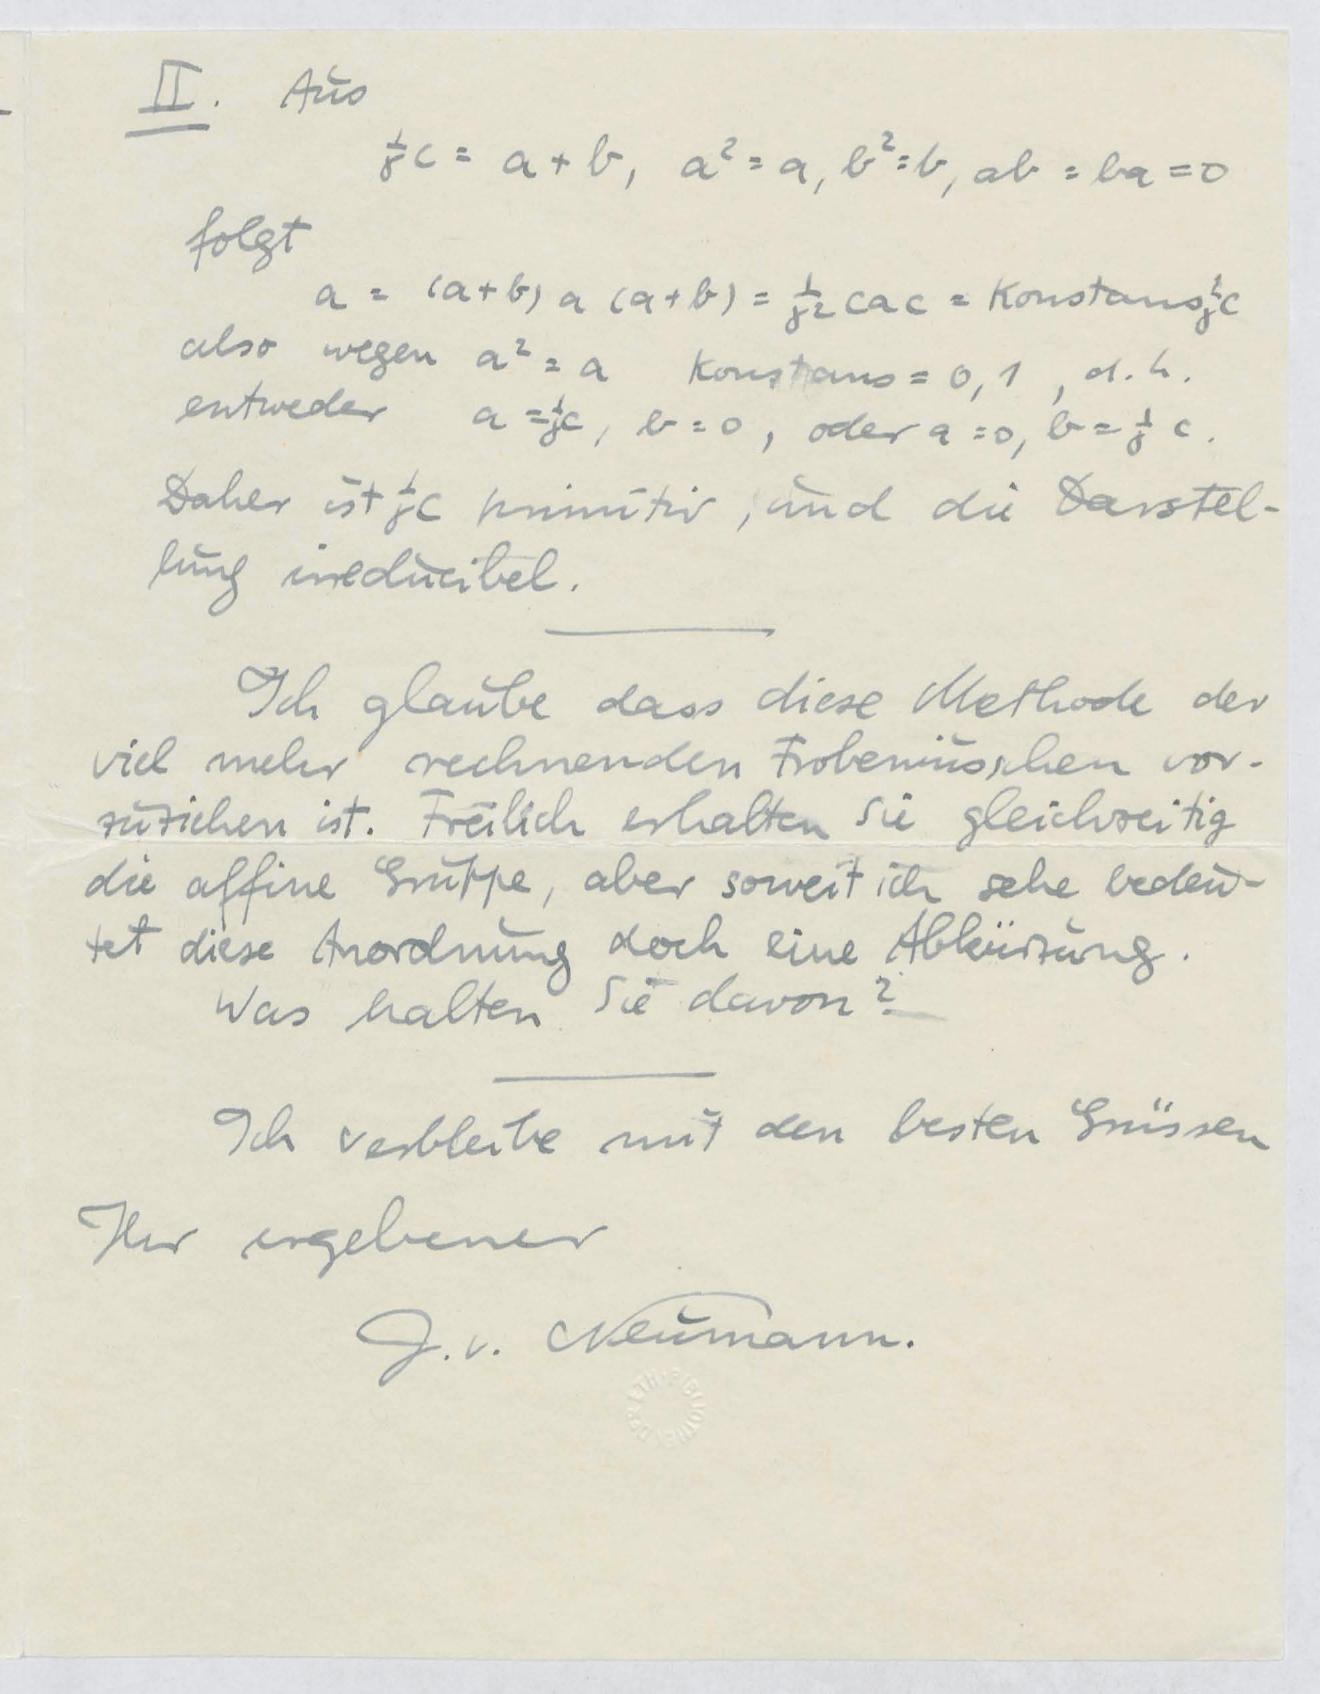 II. Aus
1/γ c = a + b, a² = a, b² = b, ab = ba = 0
folgt
a = (a+b) a (a+b) = 1/γ² cac = Konstans 1/γ c
also wegen a² = a Konstans = 0, 1, d. h.
entweder a = 1/γ c, b = 0, oder a = 0, b = 1/γ c.
Daher ist 1/γ c primitiv, und die Darstel-
lung irreducibel.
Ich glaube dass diese Methode der
viel mehr rechnenden Frobeniusschen vor-
zuziehen ist. Freilich erhalten Sie gleichzeitig
die affine Gruppe, aber soweit ich sehe bedeu-
tet diese Anordnung doch eine Abkürzung.
Was halten Sie davon?
Ich verbleibe mit den besten Grüssen
Ihr ergebener
J. v. Neumann.